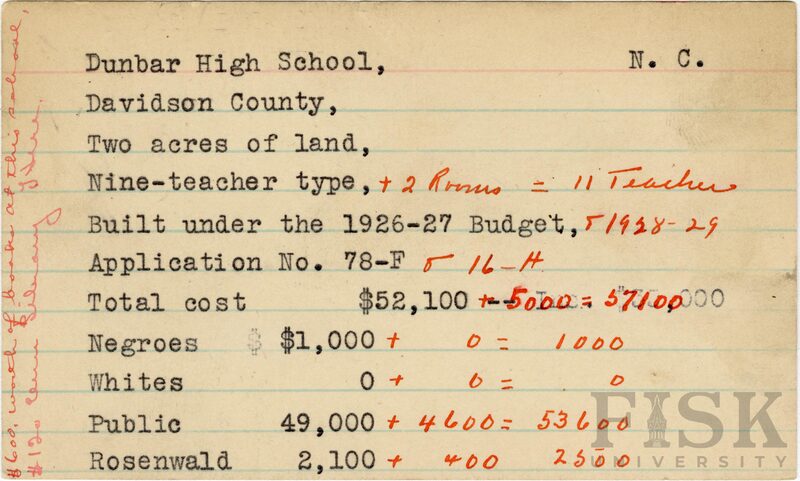 Dunbar High School, N. C.
Davidson County,
Two acres of land,
Nine-teacher type, + 2 Rooms = 11 Teacher
Built under the 1926-27 Budget, & 1928-29
Application No. 78-F & 16-H
Total cost $52,100 + 5000 = 57100
Negroes $ $1,000 + 0 = 1000
Whites 0 + 0 = 0
Public 49,000 + 4600 = 53600
Rosenwald 2,100 + 400 2500
$600. worth of books at this school,
$120 Library Here.
FISK
UNIVERSITY